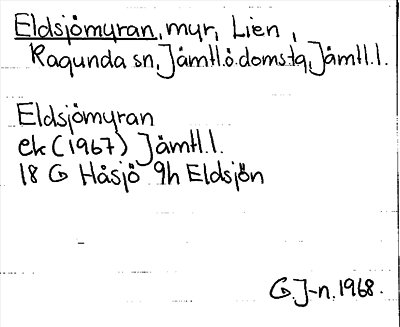 Eldsjömyran, myr, Lien,
Ragunda sn, Jämtl.ö.domstg, Jämtl.l.
Eldsjömyran
ek (1967) Jämtl.l.
18 G Håsjö 9h Eldsjön
G.J-n. 1968.